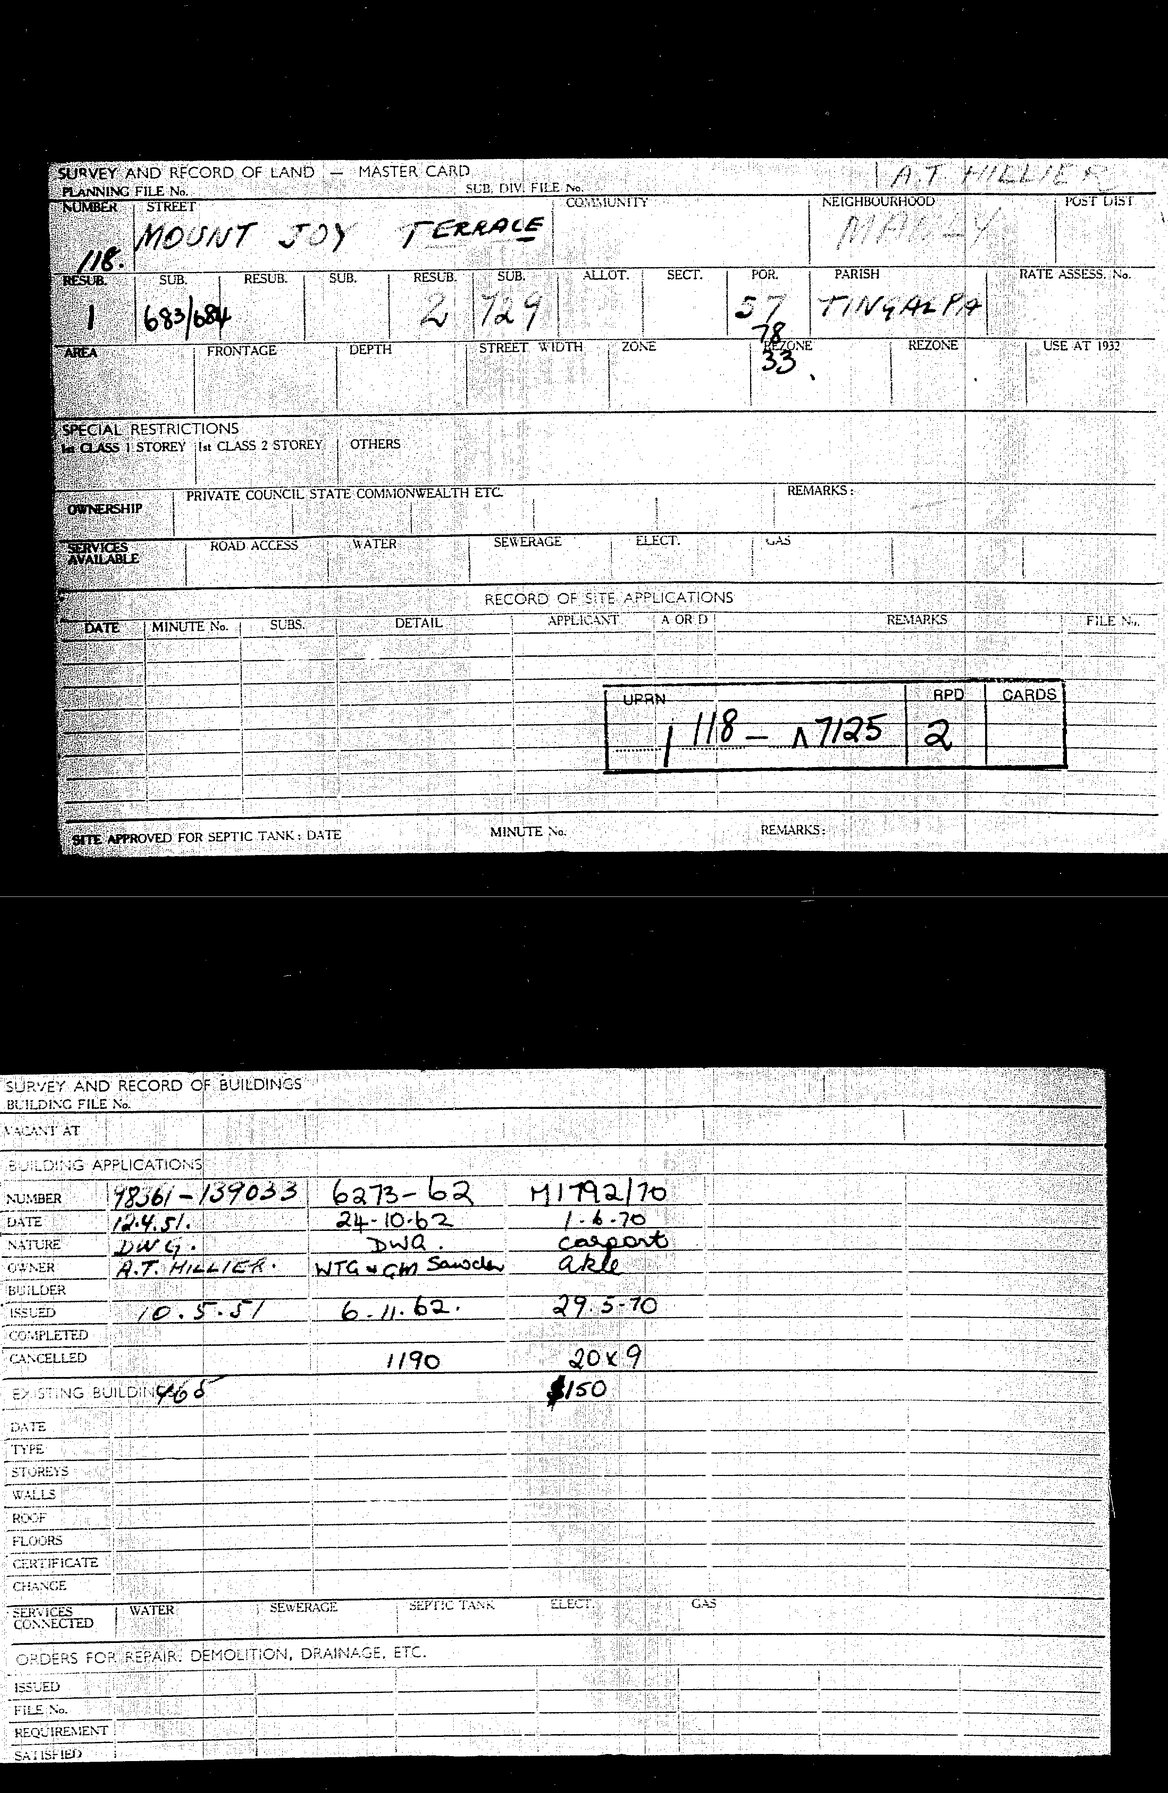 SURVEY AND RECORD OF LAND — MASTER CARD A.T. HILLIER
PLANNING FILE No. SUB. DIV. FILE No.
NUMBER STREET COMMUNITY NEIGHBOURHOOD POST DIST
118. MOUNT JOY TERRACE MANLY
RESUB. SUB. RESUB. SUB. RESUB. SUB. ALLOT. SECT. POR. PARISH RATE ASSESS. No.
1 683/684 2 729 57 TINGALPA
78
AREA FRONTAGE DEPTH STREET WIDTH ZONE REZONE REZONE USE AT 1932
33
SPECIAL RESTRICTIONS
1st CLASS 1 STOREY 1st CLASS 2 STOREY OTHERS
OWNERSHIP PRIVATE COUNCIL STATE COMMONWEALTH ETC. REMARKS:
SERVICES AVAILABLE ROAD ACCESS WATER SEWERAGE ELECT. GAS
RECORD OF SITE APPLICATIONS
DATE MINUTE No. SUBS. DETAIL APPLICANT A OR D REMARKS FILE No.
UPRN RPD CARDS
118 — 7125 2
SITE APPROVED FOR SEPTIC TANK: DATE MINUTE No. REMARKS:
SURVEY AND RECORD OF BUILDINGS
BUILDING FILE No.
VACANT AT
BUILDING APPLICATIONS
NUMBER 98361-139033 6273-62 M1792/70
DATE 12.4.51. 24-10-62 1-6-70
NATURE DWG. DWG. carport
OWNER A.T. HILLIER. WTG & GM akle
BUILDER
ISSUED 10.5.51 6.11.62. 29.5-70
COMPLETED
CANCELLED 1190 20x9
EXISTING BUILDINGS 465 $150
DATE
TYPE
STOREYS
WALLS
ROOF
FLOORS
CERTIFICATE
CHANGE
SERVICES CONNECTED WATER SEWERAGE SEPTIC TANK ELECT. GAS
ORDERS FOR REPAIR, DEMOLITION, DRAINAGE, ETC.
ISSUED
FILE No.
REQUIREMENT
SATISFIED